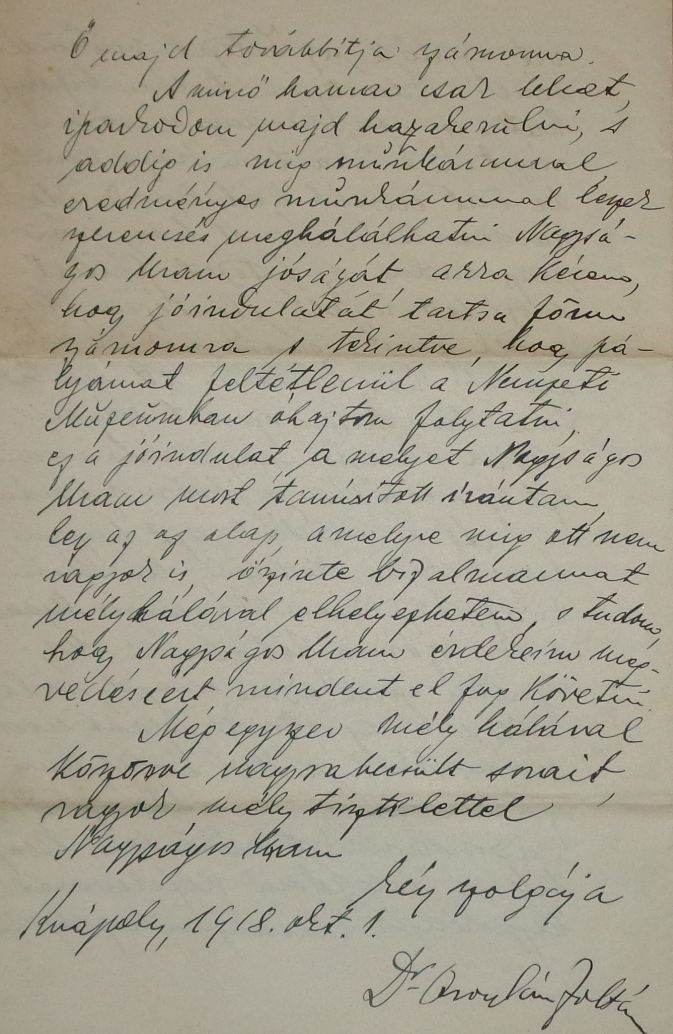 Ő majd továbbítja számomra.
A minő hamar csak lehet,
iparkodom majd hazakerülni, s
addig is míg munkámmal,
eredményes munkámmal leszek
szerencsés meghálálhatni Nagysá-
gos Uram jóságát, arra kérem,
hogy jóindulatát tartsa fönn
számomra s tekintve, hogy pá-
lyámat feltétlenül a Nemzeti
Múzeumban óhajtom folytatni,
ez a jóindulat, a melyet Nagyságos
Uram most tanúsított irántam,
lesz az az alap, amelyre míg ott nem
vagyok is, őszinte bizalmammat
mély hálával elhelyezhetem, s tudom,
hogy Nagyságos Uram érdekeim meg-
védéséért mindent el fog követni.
Még egyszer mély hálával
köszönve nagyrabecsült sorait,
vagyok mély tisztelettel
Nagyságos Uram
kész szolgája
1918. okt. 1.
Dr. Zoltán